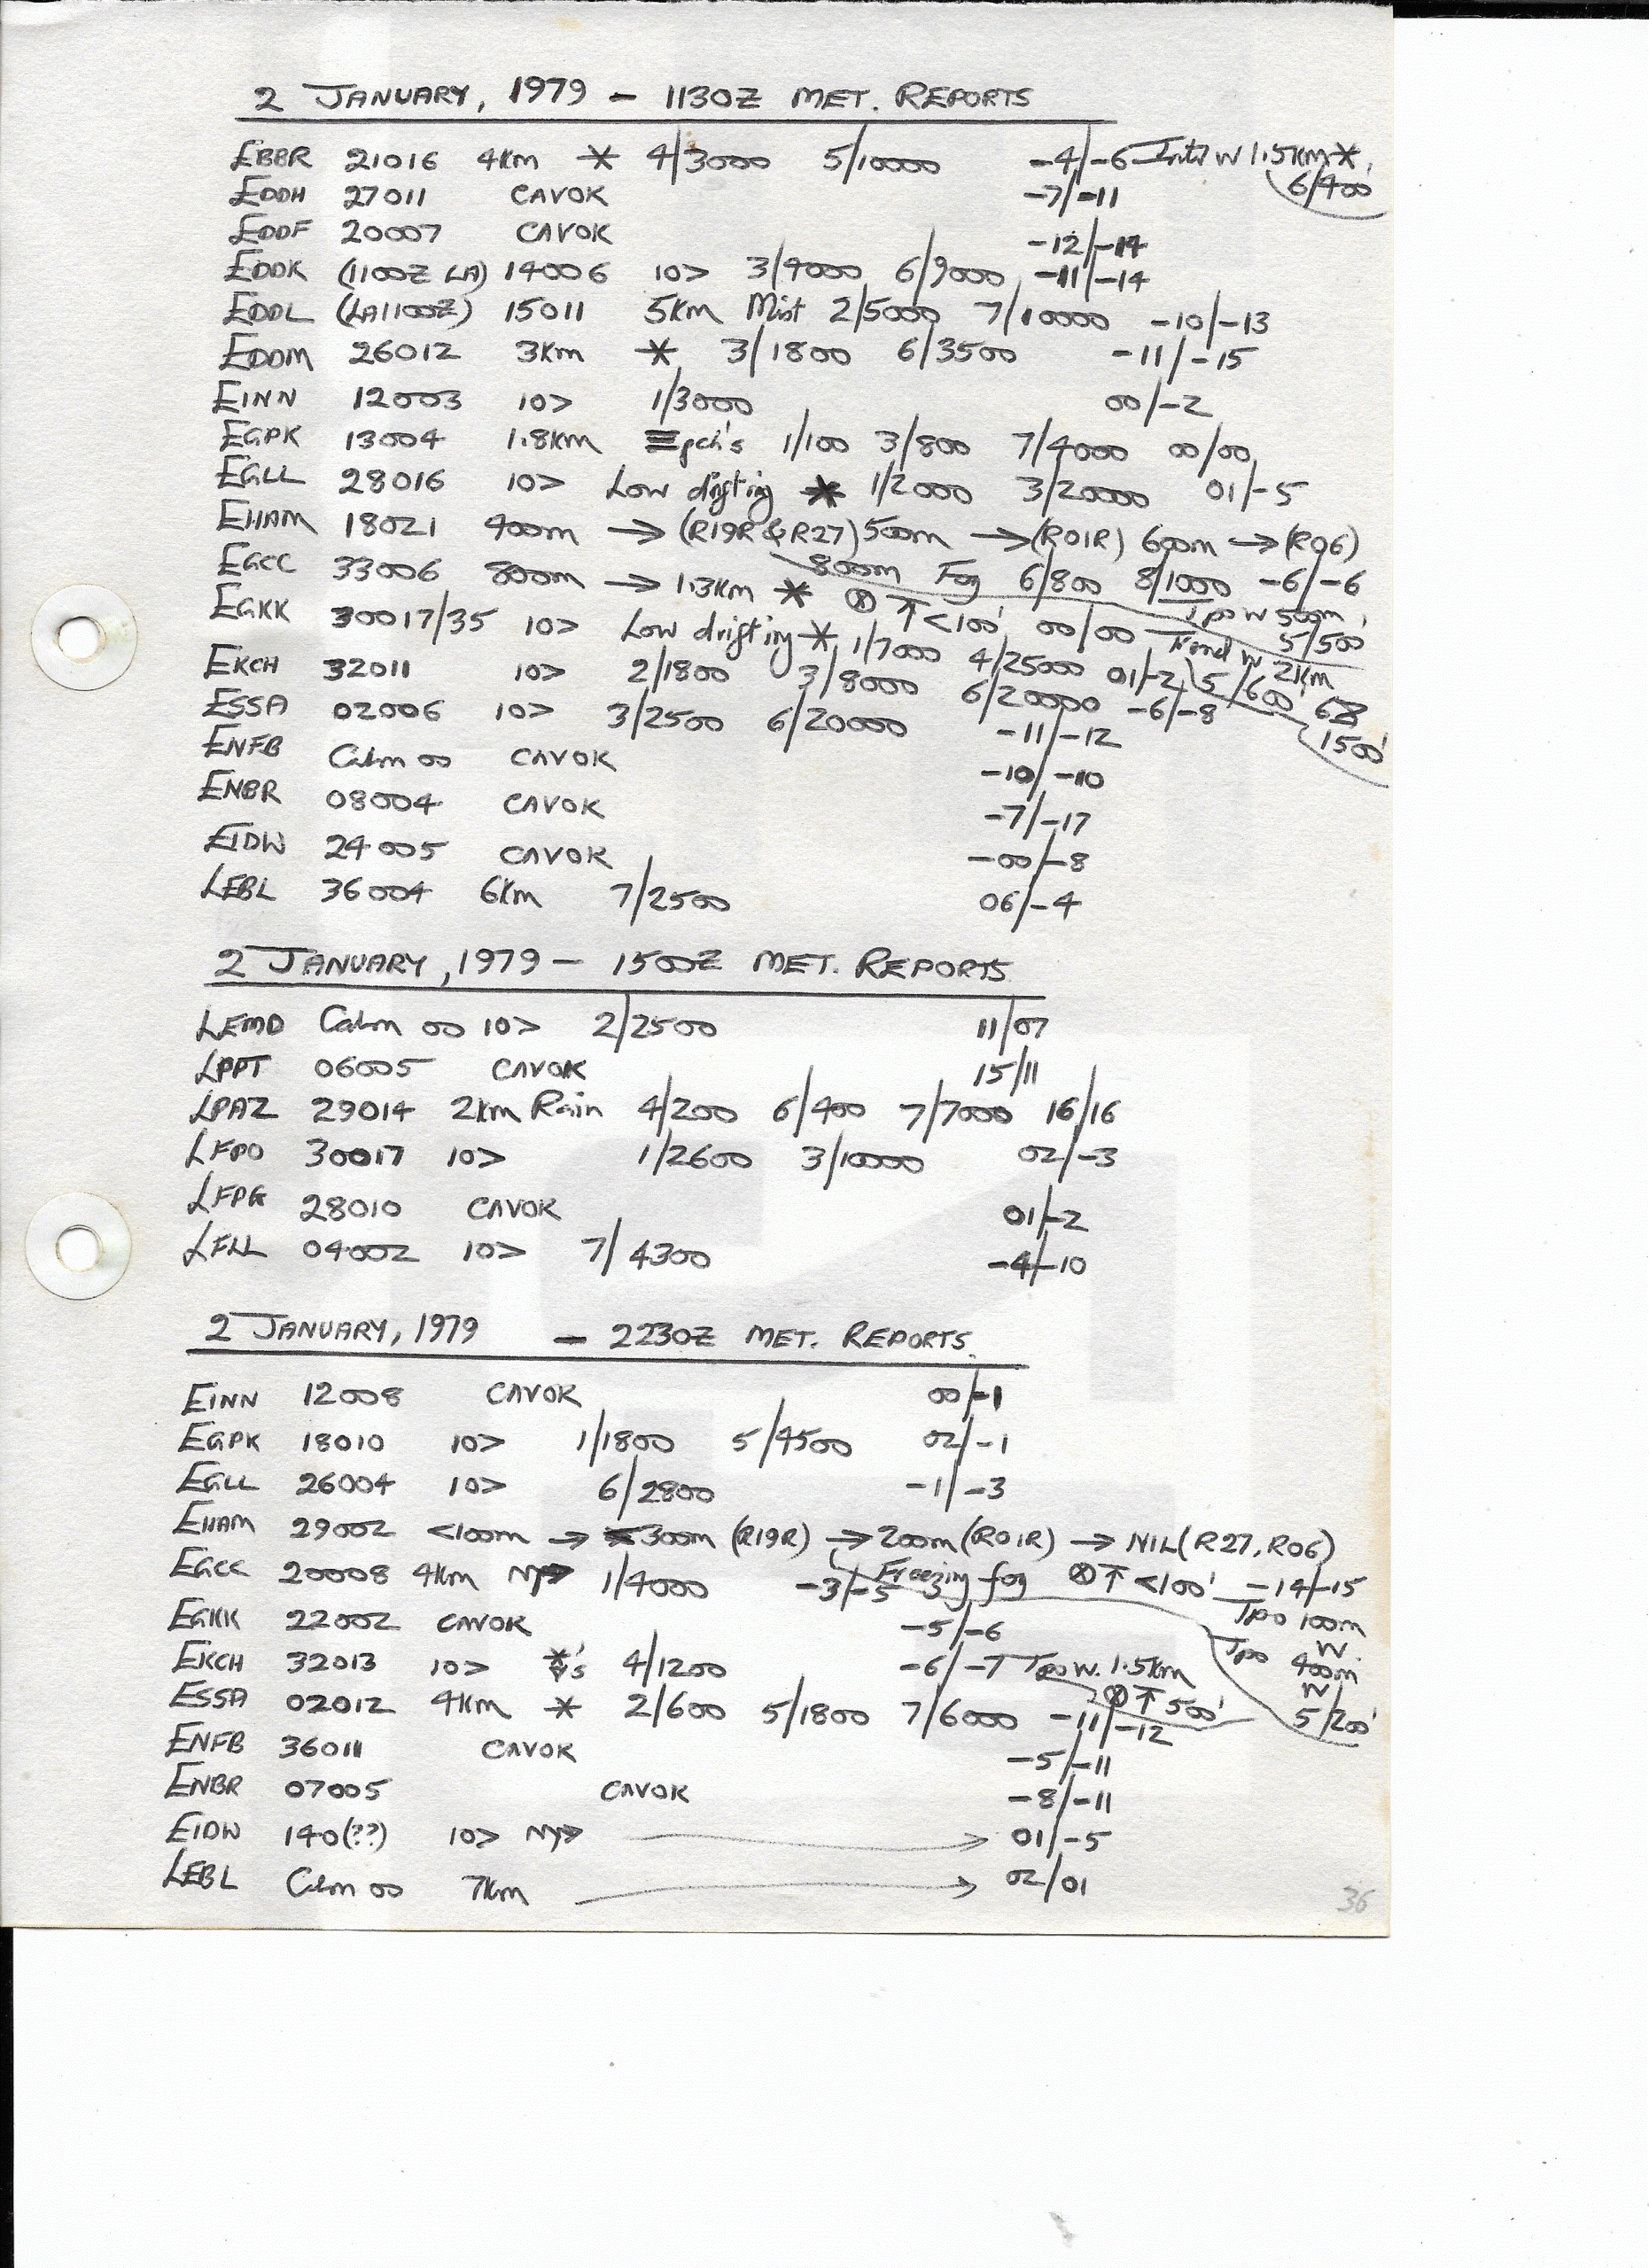 2 JANUARY, 1979 - 1130Z MET. REPORTS
EBBR 21016 4Km * 4/3000 5/10000 -4/-6 Intd W 1.5Km *,
6/400
EDDH 27011 CAVOK -7/-11
EDDF 20007 CAVOK -12/-14
EDDK (1100Z LA) 14006 10> 3/4000 6/9000 -11/-14
EDDL (LA1100Z) 15011 5Km Mist 2/5000 7/10000 -10/-13
EDDM 26012 3Km * 3/1800 6/3500 -11/-15
EINN 12003 10> 1/3000 00/-2
EGPK 13004 1.8Km ≡pch's 1/100 3/800 7/4000 00/00
EGLL 28016 10> Low drifting * 1/2000 3/20000 01/-5
EHAM 18021 400m → (R19R & R27) 500m → (R01R) 600m → (R06)
800m Fog 6/800 8/1000 -6/-6
Tpo W 500m,
5/500
EGCC 33006 800m → 1.3Km * ⊗ ↑ <100' 00/00 Trend W 2Km
5/600' 68
1500'
EGKK 30017/35 10> Low drifting * 1/7000 4/25000 01/-2
EKCH 32011 10> 2/1800 3/8000 6/20000 -6/-8
ESSA 02006 10> 3/2500 6/20000 -11/-12
ENFB Calm 00 CAVOK -10/-10
ENBR 08004 CAVOK -7/-17
EIDW 24005 CAVOK -00/-8
LEBL 36004 6Km 7/2500 06/-4
2 JANUARY, 1979 - 1500Z MET. REPORTS
LEMD Calm 00 10> 2/2500 11/07
LPPT 06005 CAVOK 15/11
LPAZ 29014 2Km Rain 4/200 6/400 7/7000 16/16
LFPO 30017 10> 1/2600 3/10000 02/-3
LFPG 28010 CAVOK 01/-2
LFLL 04002 10> 7/4300 -4/-10
2 JANUARY, 1979 - 2230Z MET. REPORTS
EINN 12008 CAVOK 00/-1
EGPK 18010 10> 1/1800 5/4500 02/-1
EGLL 26004 10> 6/2800 -1/-3
EHAM 29002 <100m → 300m (R19R) → 200m (R01R) → NIL (R27, R06)
Freezing fog ⊗ ↑ <100' -14/-15
Tpo 100m
W.
Tpo 400m
W
5/200'
EGCC 20008 4Km 1/4000 -3/-5
EGKK 22002 CAVOK -5/-6
EKCH 32013 10> *'s 4/1200 -6/-7 Tpo W. 1.5Km
⊗ ↑ 500'
ESSA 02012 4Km * 2/600 5/1800 7/6000 -11/-12
ENFB 36011 CAVOK -5/-11
ENBR 07005 CAVOK -8/-11
EIDW 140(??) 10> → 01/-5
LEBL Calm 00 7Km → 02/01
36